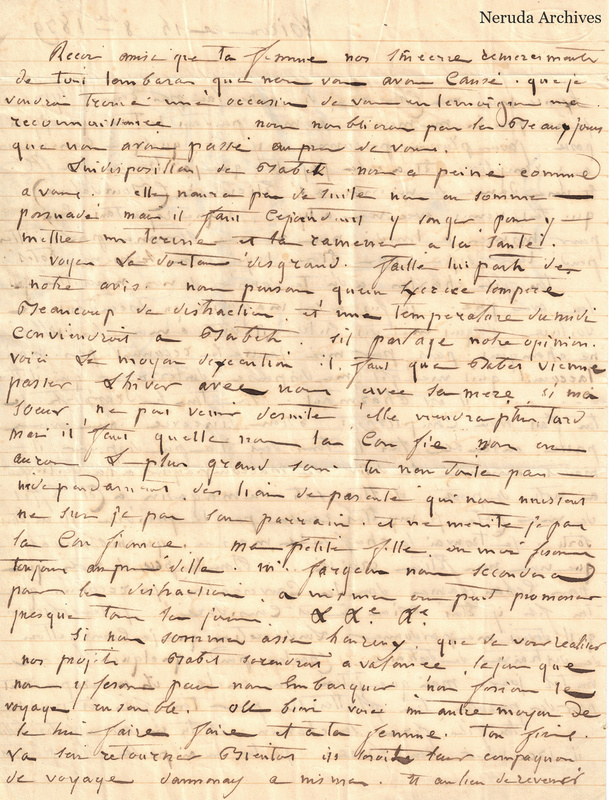 Neruda Archives
Recoi ainsi que ta femme nos Sinceres remerciments
de tout lembaras que nous vous avons Causé. que je
voudrai trouvé une occasion de vous en temoigne ma
reconnaissance nous noublieron pas les Beaux jours
que nous avons passé aupres de vous.
Lindisposition de Babeth nous a peiné comme
a vous. elle noura pas de suite nous en sommes
persuadé mais il faut Cependant y songer pour y
mettre un terme et la ramener a la Santé.
voyez Le docteur desgrand. faitte lui part de
notre avis. nous penson quun Exercice temperé
Beaucoup de distraction. et une temperature du midi
Conviendrait a Babeth. Sil partage notre opinion.
voici Le moyen dexecution il faut que Babet vienne
passer Lhiver avec nous avec Sa mere, Si ma
Soeur ne peut venir desuite elle viendra plus tard
mais il faut quelle nous la Confie nous en
auron Le plus grand soin tu non doute pas
independamment des liens de parenté qui nous unissent
ne suis je pas Son parrain. et ne merite je pas
Sa Confiance. ma petite fille, ou moi serons
toujours aupres delle. Mr fargeon nous Secondera
pour les distractions. a nismes on peut promener
presque tous les jours. & &c &c
Si nous sommes assez heureux que de voir realiser
nos projets Babet serendrait a valence, le jour que
nous y serons pour nous Embarquer nous ferions le
voyage ensemble. Ou bien voici un autre moyen de
le lui faire faire et a ta femme. ton frere
va sen retourner Bientot ils seroit leur compagnon
de voyage dannonay a nismes. Et au lieu de revenir